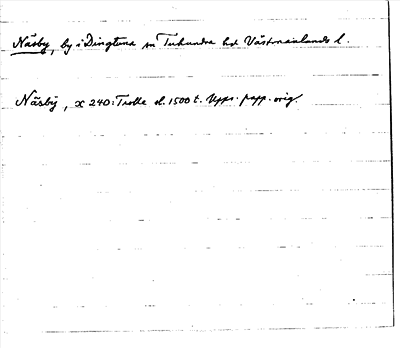 Näsby, by i Dingtuna sn Tuhundra hd Västmanlands l.
Näsby, X 240: Trolle sl. 1500 t. Upps. papp. orig.